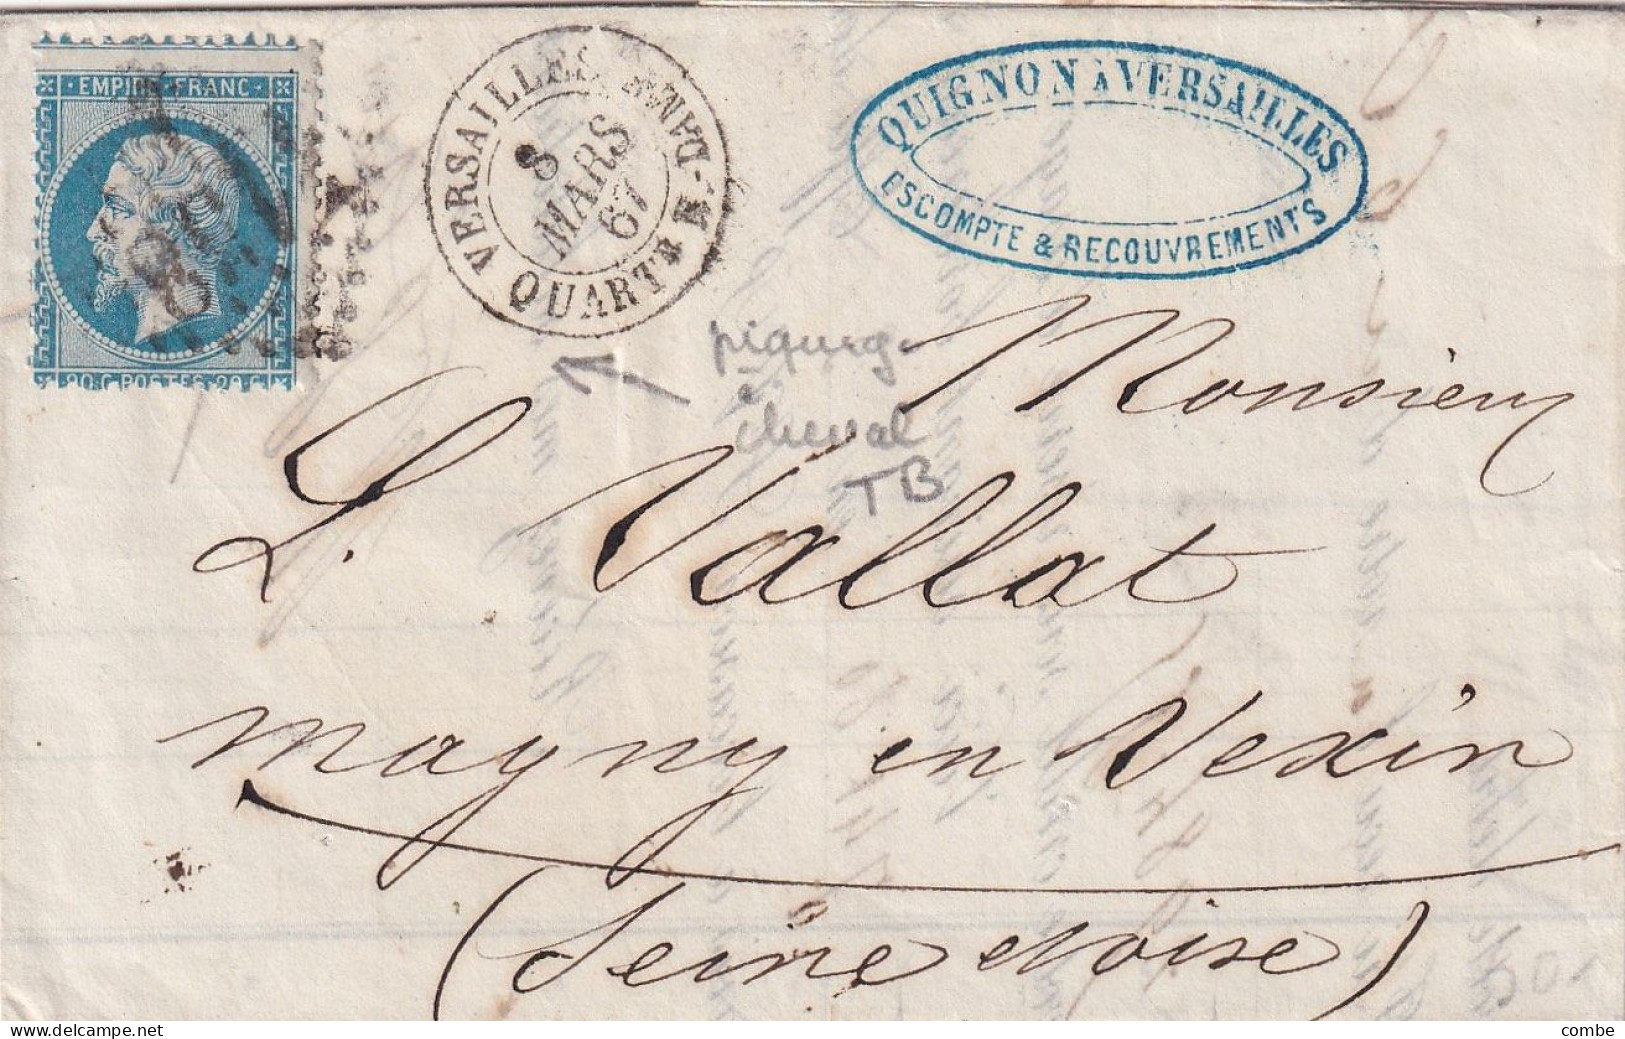 EMPIRE FRANC
20 C POSTES 20 C
VERSAILLES
QUARTR N.-DAME
8
MARS
67
QUIGNON À VERSAILLES
ESCOMPTE & RECOUVREMENTS
piquage
à
cheval
TB
Monsieur
L. Vallat
Magny en Vexin
(Seine et oise)
delcampe.net
combe